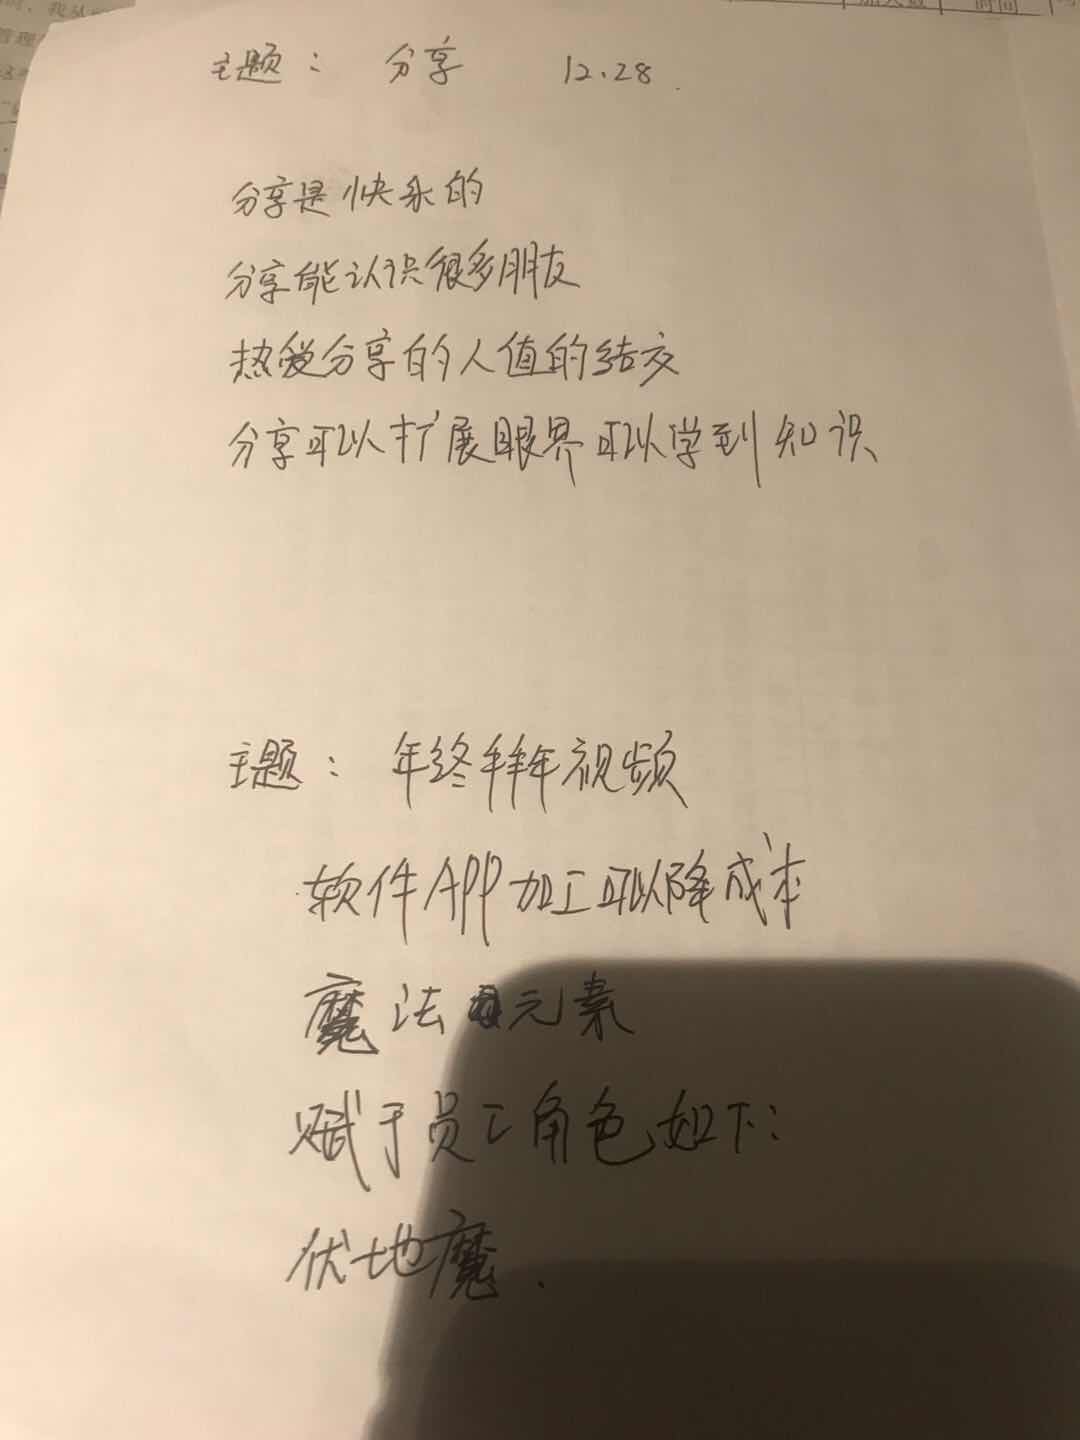 主题： 分享 12.28
分享是快乐的
分享能认识很多朋友
热爱分享的人值的结交
分享可以扩展眼界可以学到知识
主题： 年终拜年视频
软件APP加工可以降成本
魔法元素
赋于员工角色如下：
伏地魔.